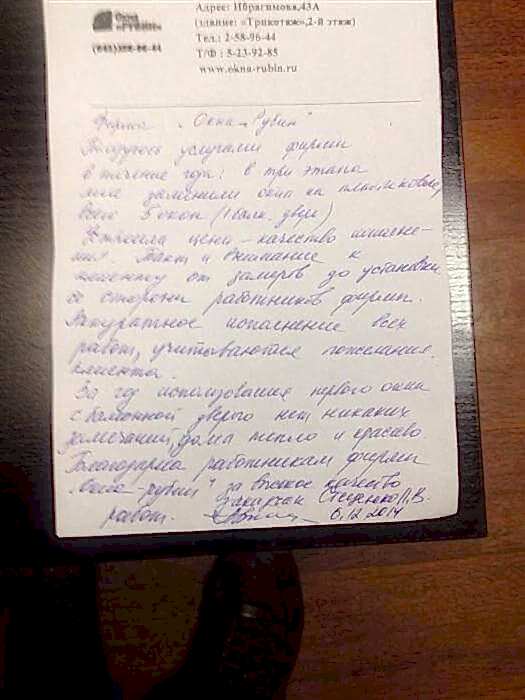 Адрес: Ибрагимова,43А
Окна
«РУБИН»
(здание: «Трикотаж»,2-й этаж)
Тел.: 2-58-96-44
Т/Ф : 5-23-92-85
www.okna-rubin.ru
Фирма „Окна-Рубин"
Пользуюсь услугами фирмы
в течение года: в три этапа
мне заменили окна на пластиковые,
всего 5 окон (1 балк. дверь)
Устроила цена – качество исполне-
ния. Такт и внимание к
клиенту от замеров до установки
со стороны работников фирмы.
Аккуратное исполнение всех
работ, учитываются пожелания
клиента.
За год использования первого окна
с балконной дверью нет никаких
замечаний, дома тепло и красиво.
Благодарна работникам фирмы
„Окна-рубин" за высокое качество
работ.
Стеценко Л.В.
6.12.2014